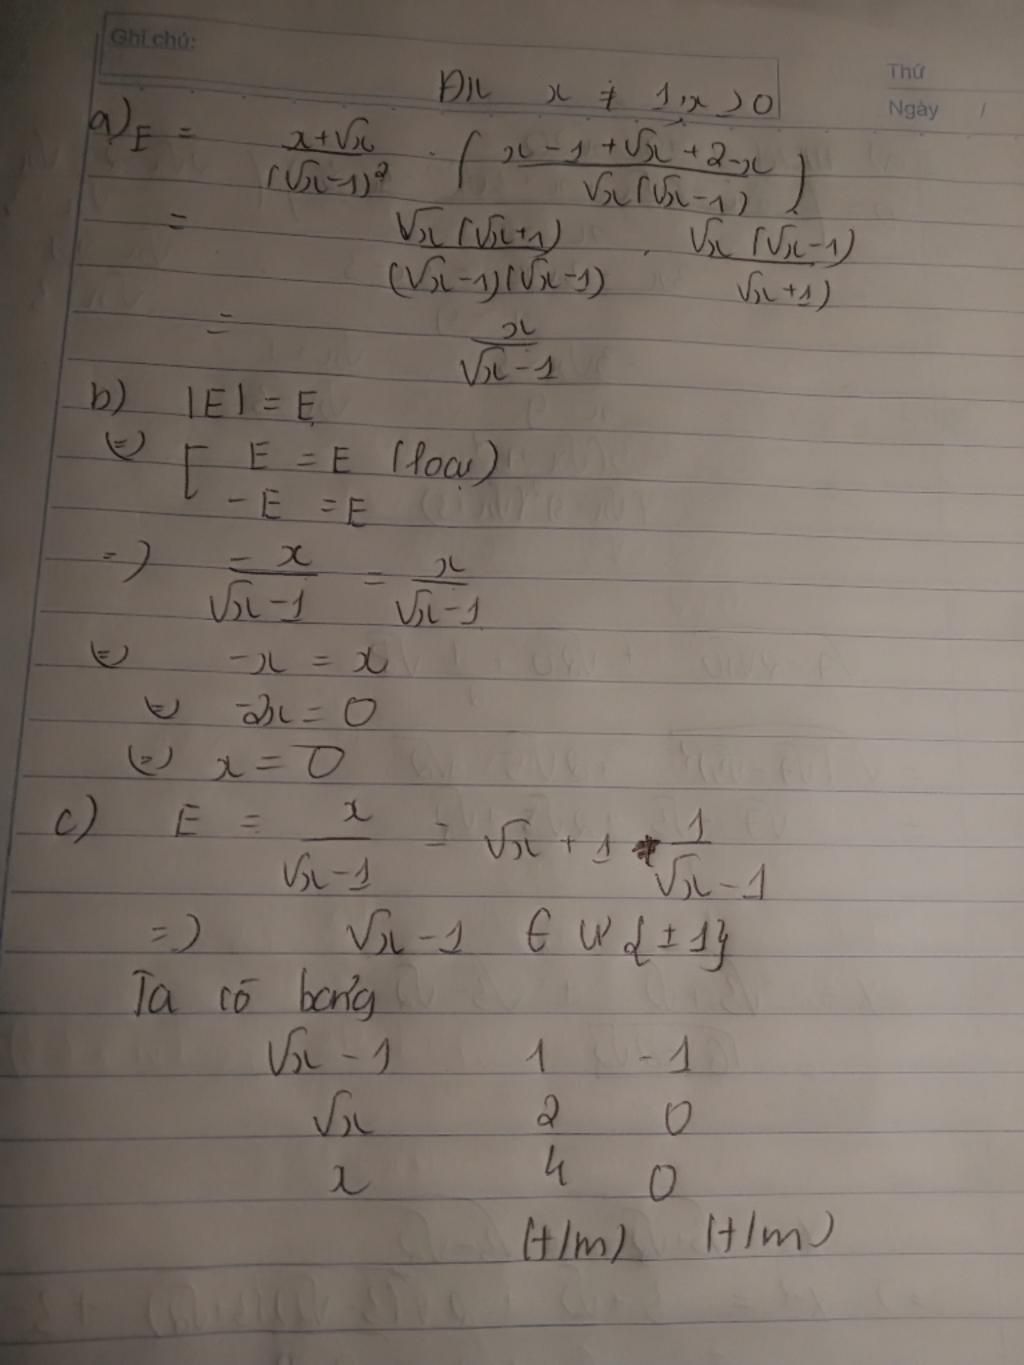 Ghi chú:
Thứ
Ngày /
ĐK x ≠ 1, x > 0
a) E = x+√x / (√x-1)² · ( x-1+√x+2-x / √x(√x-1) )
= √x(√x+1) / (√x-1)(√x-1) . √x(√x-1) / √x+1)
= x / √x-1
b) |E| = E
(=) [ E = E (loại)
-E = E
=) -x / √x-1 = x / √x-1
(=) -x = x
(=) -2x = 0
(=) x = 0
c) E = x / √x-1 = √x + 1 + 1 / √x-1
=) √x-1 ∈ Ư{±1}
Ta có bảng
√x-1 1 -1
√x 2 0
x 4 0
(t/m) (t/m)